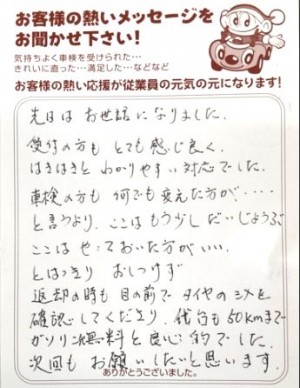 お客様の熱いメッセージを
お聞かせ下さい!
気持ちよく車検を受けられた…
きれいに直った…満足した…などなど
お客様の熱い応援が従業員の元気の元になります!
先日は お世話になりました。
受付の方も とても感じ良く、
はきはきと わかりやすい 対応でした。
車検の方も 何でも変えた方が・・・・
と言うより、ここは もう少し だいじょうぶ
ここは やっておいた方が いい、
と はっきり おしつけず
返却の時も 目の前で タイヤの
確認してくださり、代行も50kmまで
ガソリン無料と 良い でした。
次回も お願いしたいと思います。
ありがとうございました。